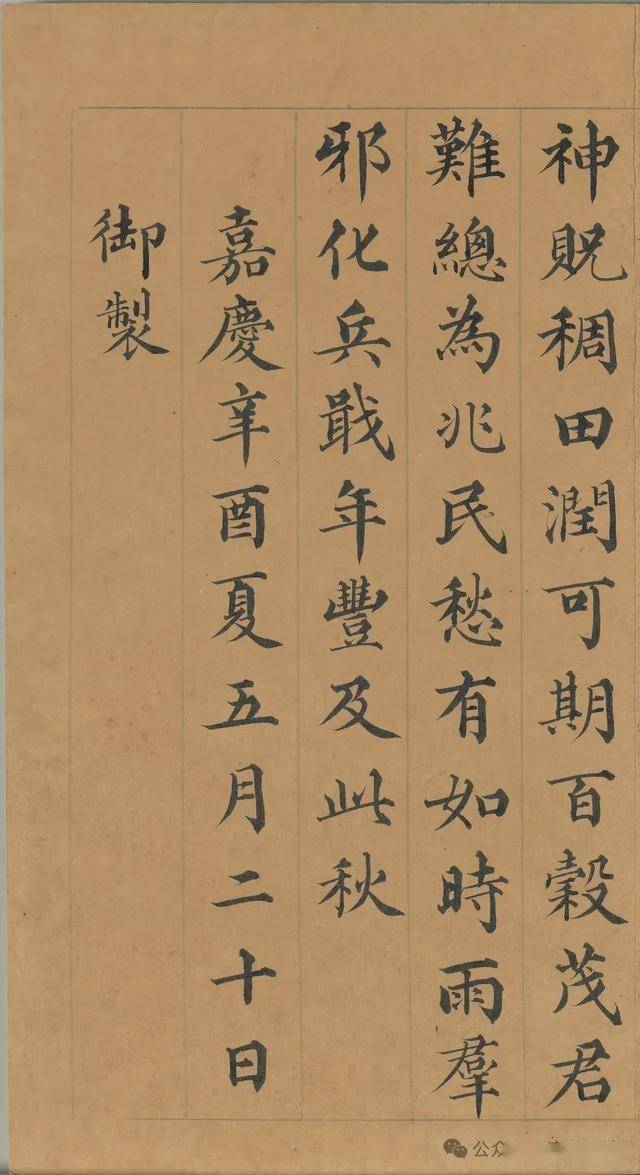 神貺稠田潤可期百穀茂君
難總為兆民愁有如時雨羣
邪化兵戢年豐及此秋
嘉慶辛酉夏五月二十日
御製
公众